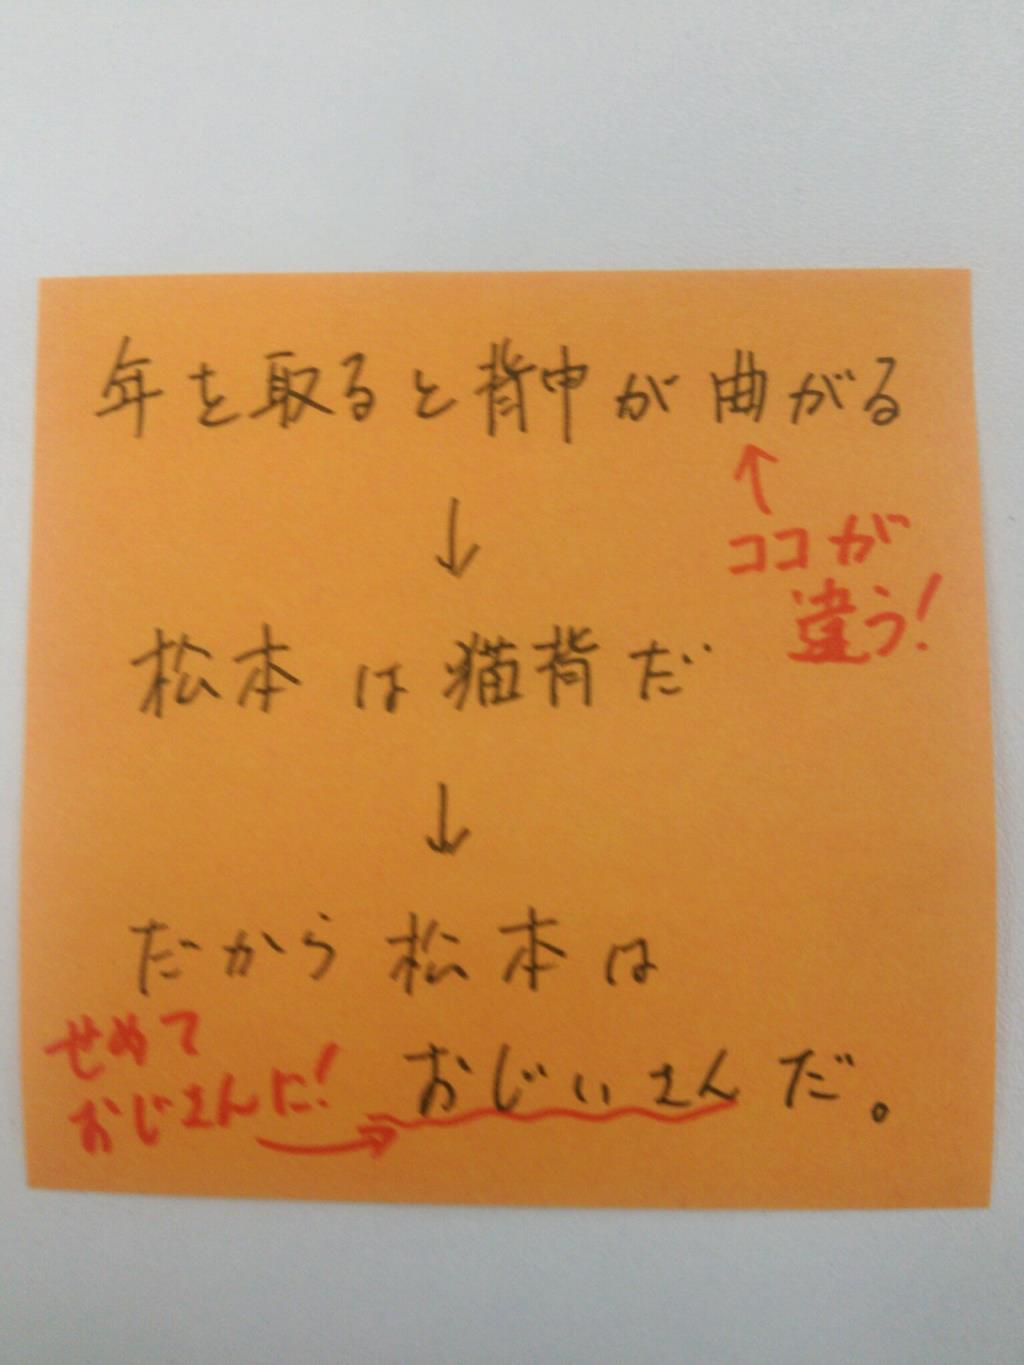 年を取ると背中が曲がる
↑
ココが
違う!
↓
松本は猫背だ
↓
だから松本は
せめて
おじさんに!→
おじぃさんだ。